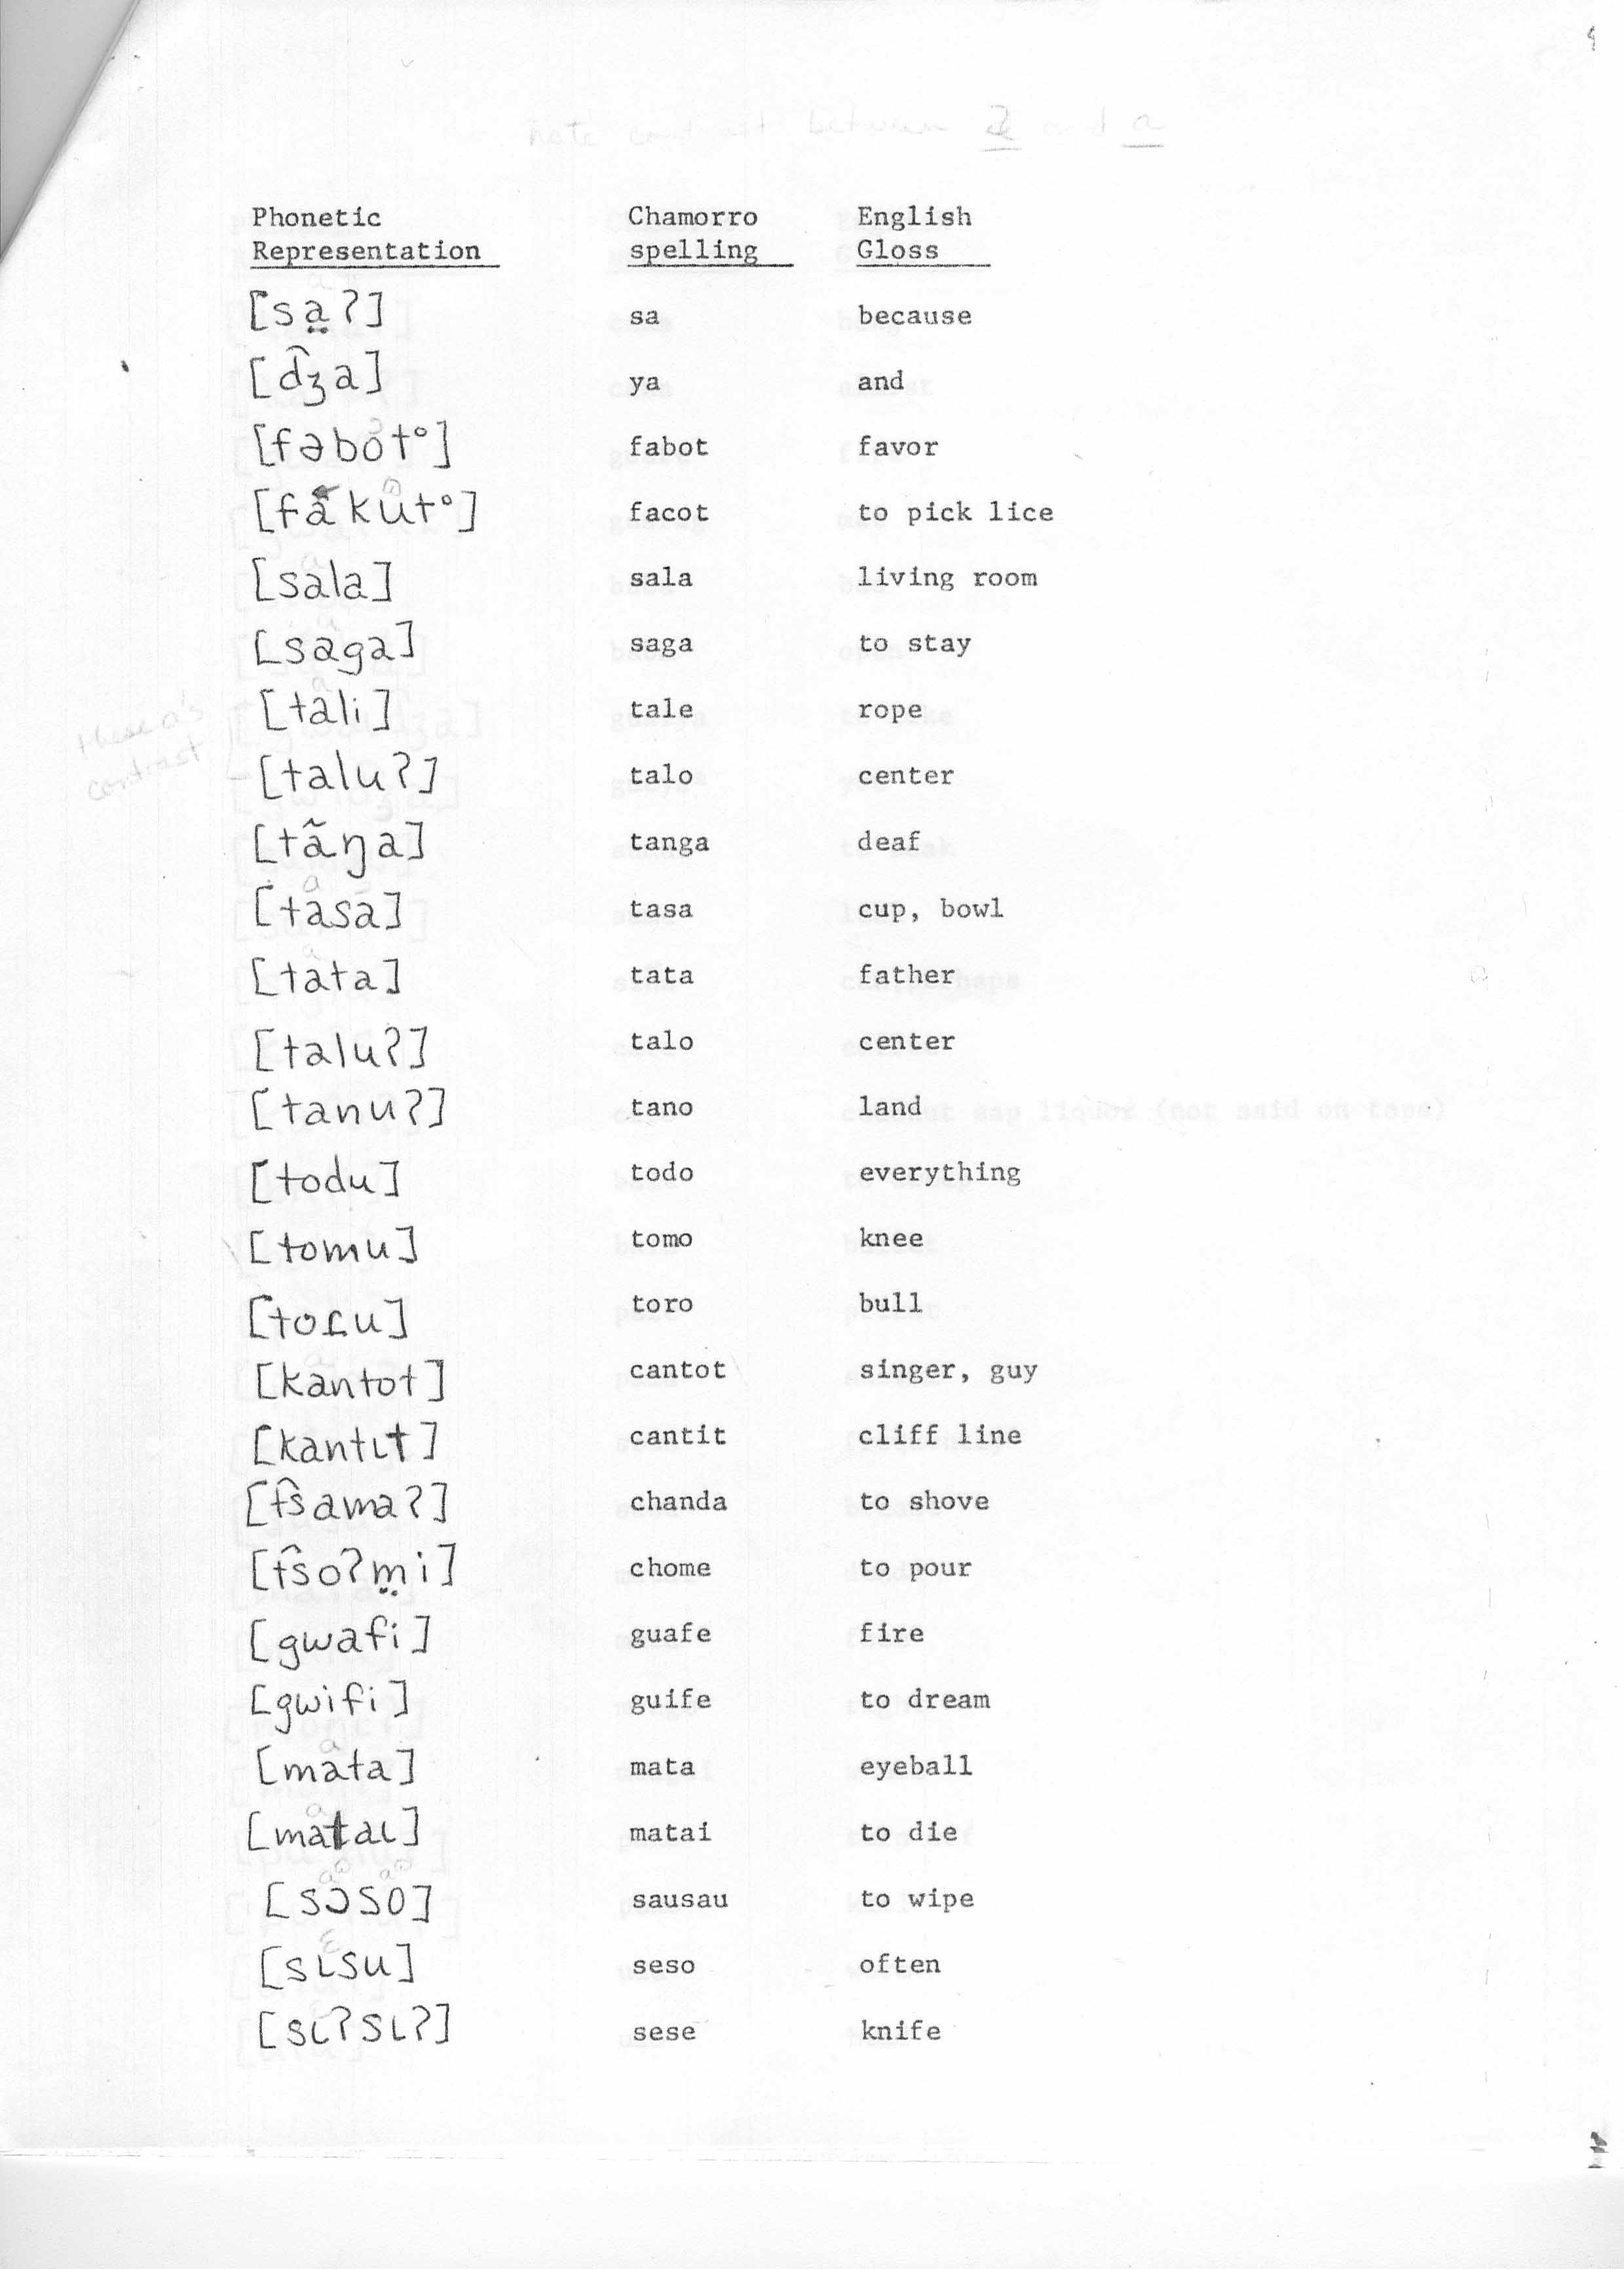 note contrast between a and a
Phonetic Chamorro English
Representation spelling Gloss
[sa̤ʔ] sa because
[d͡ʒa] ya and
[fəbot°] fabot favor
[fakut°] facot to pick lice
[sala] sala living room
[saga] saga to stay
[tali] tale rope
these a's
contrast
[taluʔ] talo center
[tãŋa] tanga deaf
[tasa] tasa cup, bowl
[tata] tata father
[taluʔ] talo center
[tanuʔ] tano land
[todu] todo everything
[tomu] tomo knee
[toɾu] toro bull
[kantot] cantot singer, guy
[kantɩt] cantit cliff line
[t͡samaʔ] chanda to shove
[t͡soʔm̤i] chome to pour
[gwafi] guafe fire
[gwifi] guife to dream
[mata] mata eyeball
[mataɩ] matai to die
[sɔso] sausau to wipe
[sɩsu] seso often
[sɩʔsɩʔ] sese knife